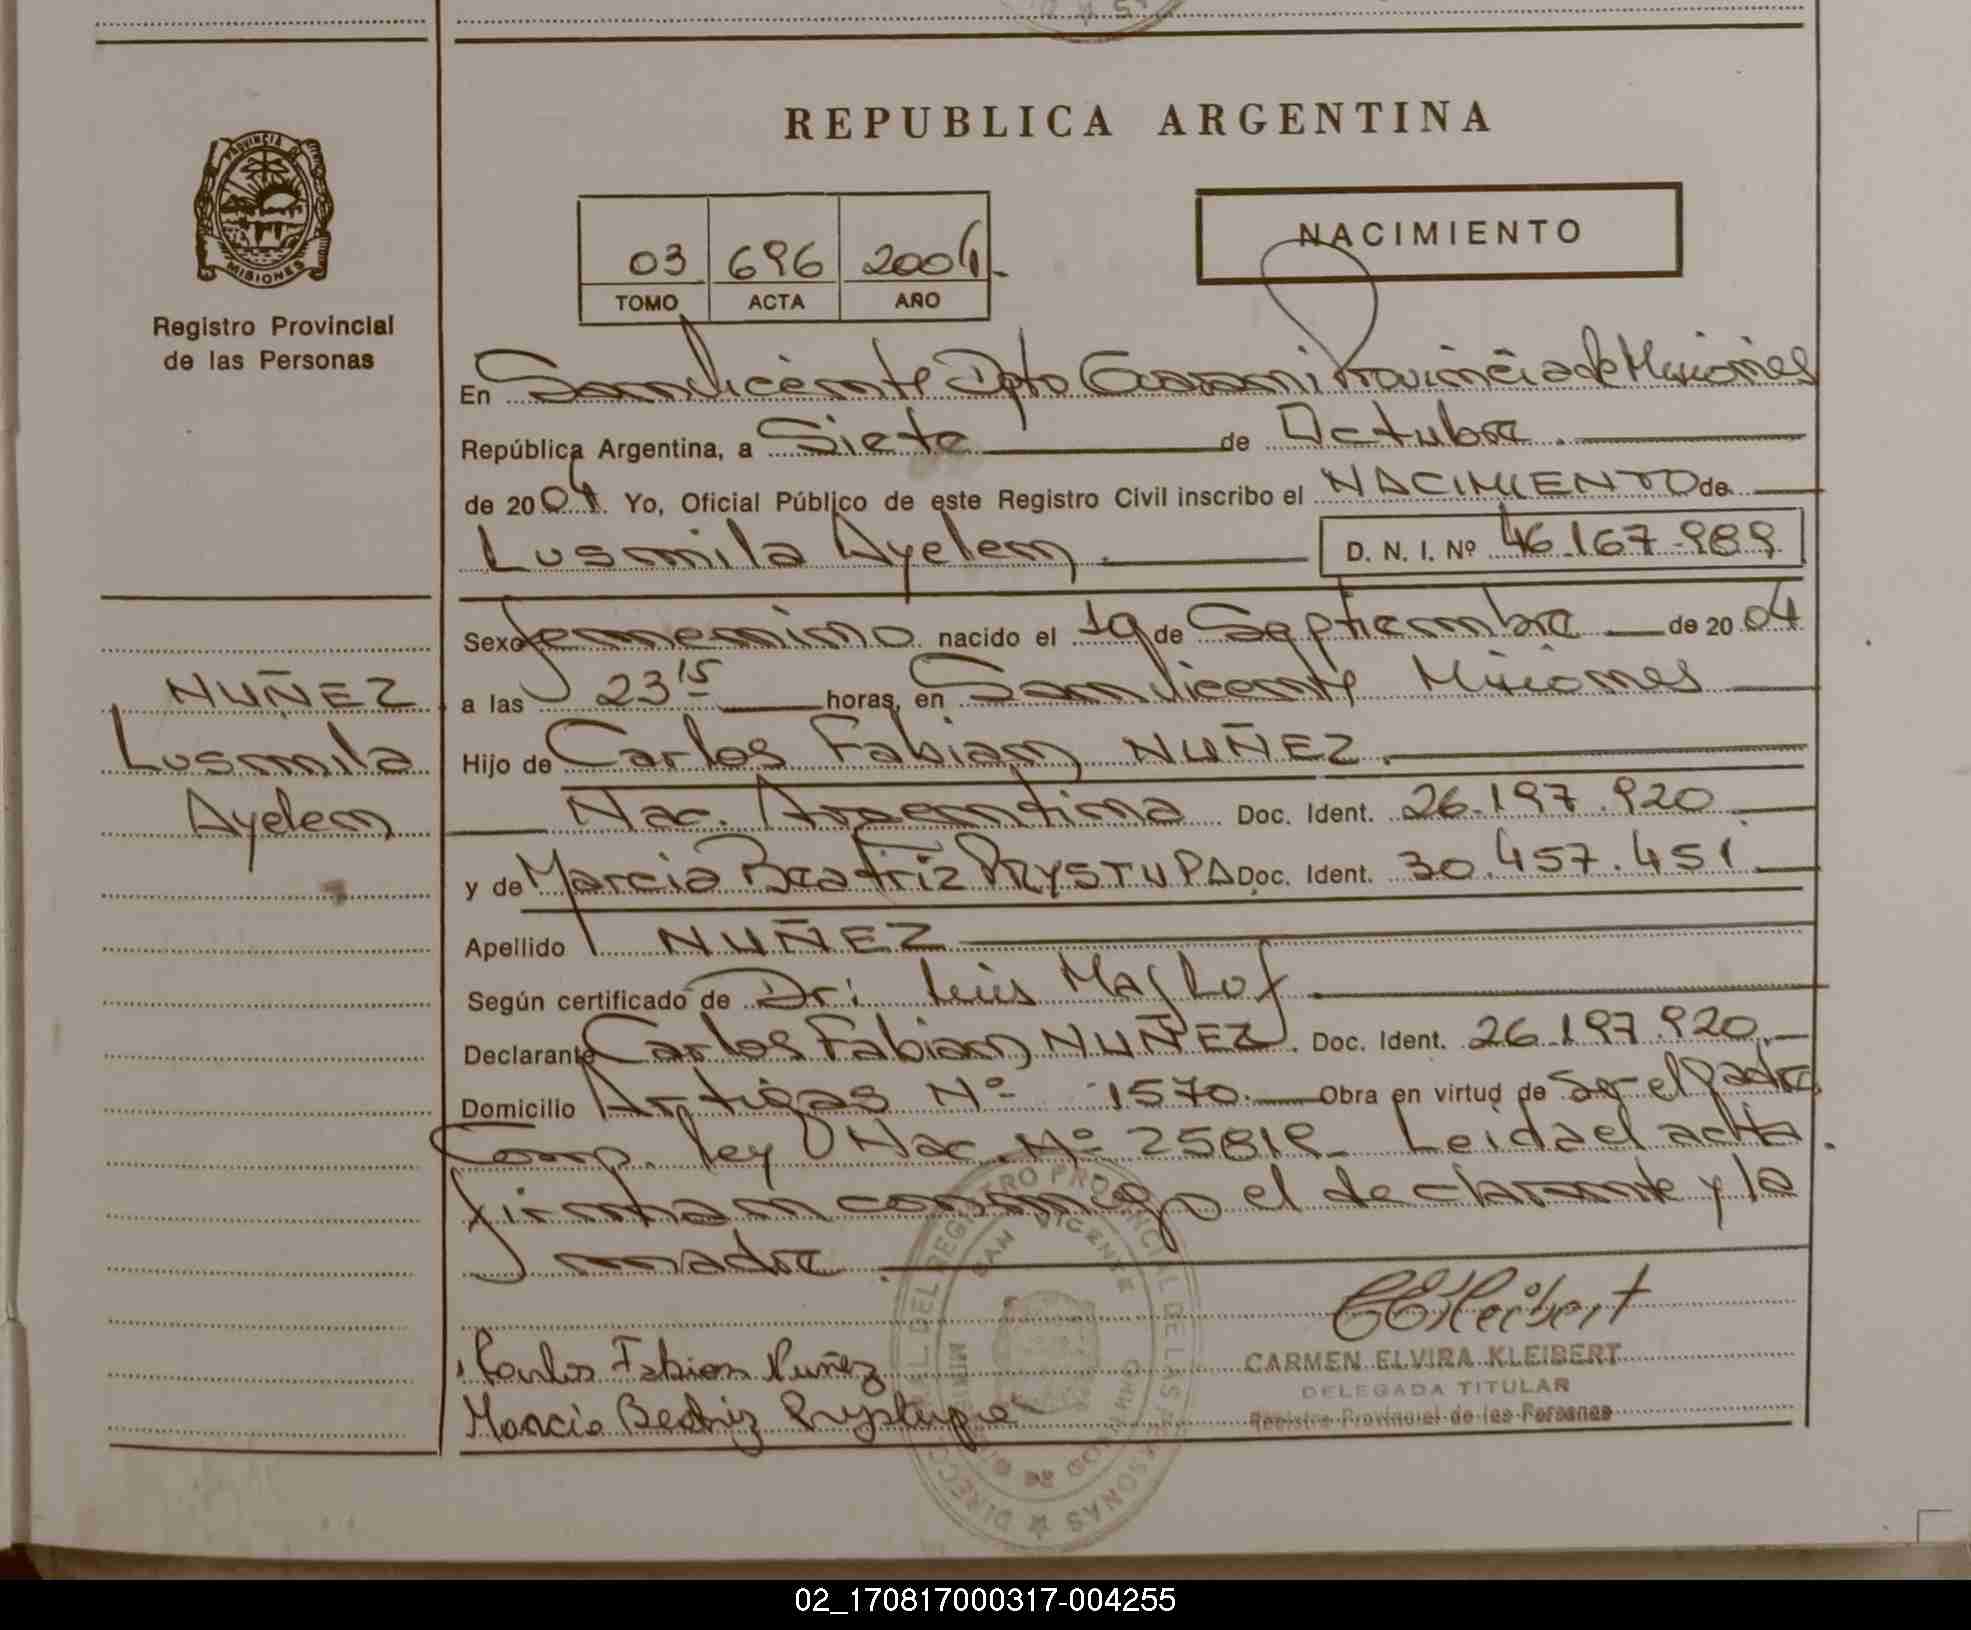 REPUBLICA ARGENTINA
PROVINCIA DE
MISIONES
Registro Provincial
de las Personas
03 696 2004.
TOMO ACTA AÑO
NACIMIENTO
En San Vicente Dpto Guarani Provincia de Misiones
República Argentina, a Siete de Octubre.
de 2004. Yo, Oficial Público de este Registro Civil inscribo el NACIMIENTO de
Lusmila Ayelen D. N. I. Nº 46.167.989
Sexo femenino nacido el 19 de Septiembre de 2004
a las 23 15 horas, en San Vicente Misiones
Hijo de Carlos Fabian NUÑEZ.
Nac. Argentina Doc. Ident. 26.197.920
y de Marcia Beatriz PRYSTUPA Doc. Ident. 30.457.451
Apellido NUÑEZ
Según certificado de Dr: Luis
Declarante Carlos Fabian NUÑEZ. Doc. Ident. 26.197.920.
Domicilio Artigas Nº 1570. Obra en virtud de Ser el Padre
Comp. ley Nac. Nº 25819 Leida el acta.
firman conmigo el declarante y la
madre.
NUÑEZ
Lusmila
Ayelen
Carlos Fabian Nuñez
Marcia Beatriz Prystupa
CARMEN ELVIRA KLEIBERT
DELEGADA TITULAR
Registro Provincial de las Personas
SAN VICENTE
02_170817000317-004255